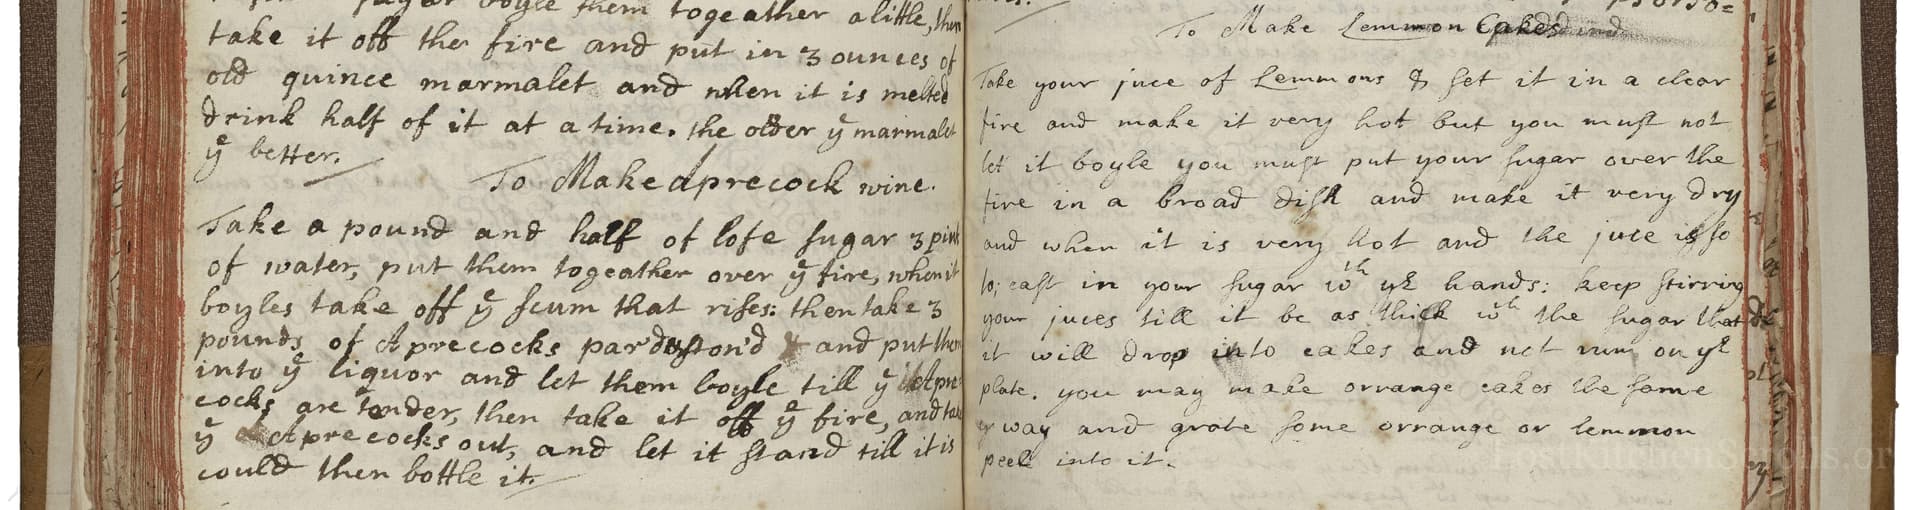 sugar boyle them togeather a little, then
take it off the fire and put in 3 ounces of
old quince marmalet and when it is melted
drink half of it at a time. the older yͤ marmalet
yͤ better.
To Make Aprecock wine.
Take a pound and half of lofe sugar 3 pints
of water, put them togeather over yͤ fire, when it
boyles take off yͤ scum that rises: then take 3
pounds of Aprecocks par'd & ston'd and put them
into yͤ liquor and let them boyle till yͤ Apre=
cocks are tender, then take it off yͤ fire, and take
yͤ Aprecocks out, and let it stand till it is
could then bottle it.
To Make Lemmon Cakes
Take your juce of Lemmons & set it in a clear
fire and make it very hot but you must not
let it boyle you must put your sugar over the
fire in a broad dish and make it very dry
and when it is very hot and the juce is so
to; cast in your sugar wᵗʰ yʳ hands: keep stirring
your juces till it be as thick wᵗʰ the sugar that
it will drop into cakes and not run on yᵉ
plate. you may make orrange cakes the same
way and grate some orrange or lemmon
peel into it.